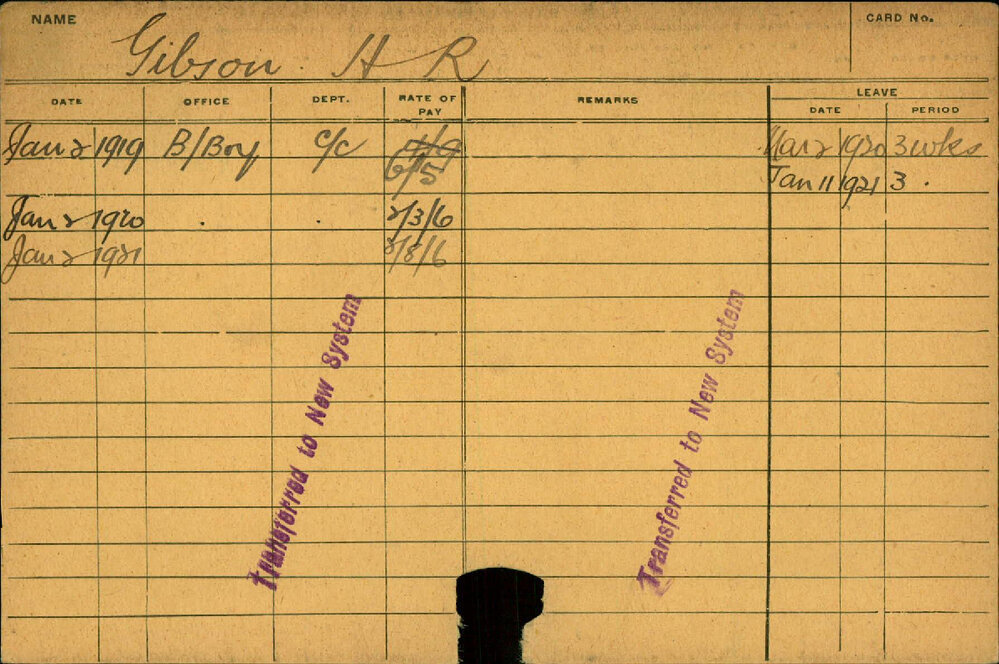 NAME
CARD No.
Gibson H R
DATE OFFICE DEPT. RATE OF PAY REMARKS LEAVE
DATE PERIOD
Jan 2 1919 B/Boy C/C Mar 2 1920 3 wks
6/5 Jan 11 1921 3 .
Jan 2 1920 . . 2/3/6
Jan 2 1921 2/8/6
Transferred to New System
Transferred to New System